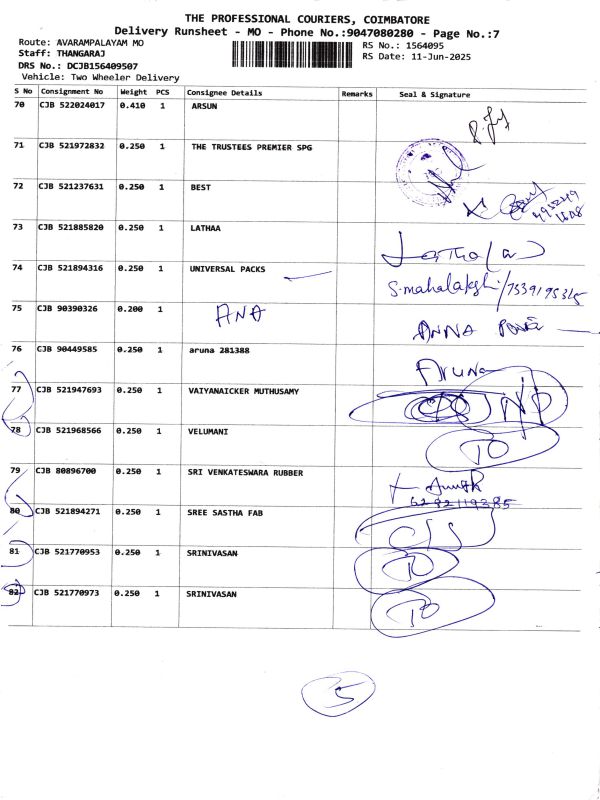 THE PROFESSIONAL COURIERS, COIMBATORE
Delivery Runsheet - MO - Phone No.:9047080280 - Page No.:7
Route: AVARAMPALAYAM MO
RS No.: 1564095
Staff: THANGARAJ
RS Date: 11-Jun-2025
DRS No.: DCJB156409507
Vehicle: Two Wheeler Delivery
S No Consignment No Weight PCS Consignee Details Remarks Seal & Signature
70 CJB 522024017 0.410 1 ARSUN
71 CJB 521972832 0.250 1 THE TRUSTEES PREMIER SPG
72 CJB 521237631 0.250 1 BEST
73 CJB 521885820 0.250 1 LATHAA
74 CJB 521894316 0.250 1 UNIVERSAL PACKS S.mahalakshi/7539195325
75 CJB 90390326 0.200 1 ANA ANNA
76 CJB 90449585 0.250 1 aruna 281388 Aruna
77 CJB 521947693 0.250 1 VAIYANAICKER MUTHUSAMY
78 CJB 521968566 0.250 1 VELUMANI TO
79 CJB 80896700 0.250 1 SRI VENKATESWARA RUBBER
80 CJB 521894271 0.250 1 SREE SASTHA FAB
81 CJB 521770953 0.250 1 SRINIVASAN TO
82 CJB 521770973 0.250 1 SRINIVASAN TO
35